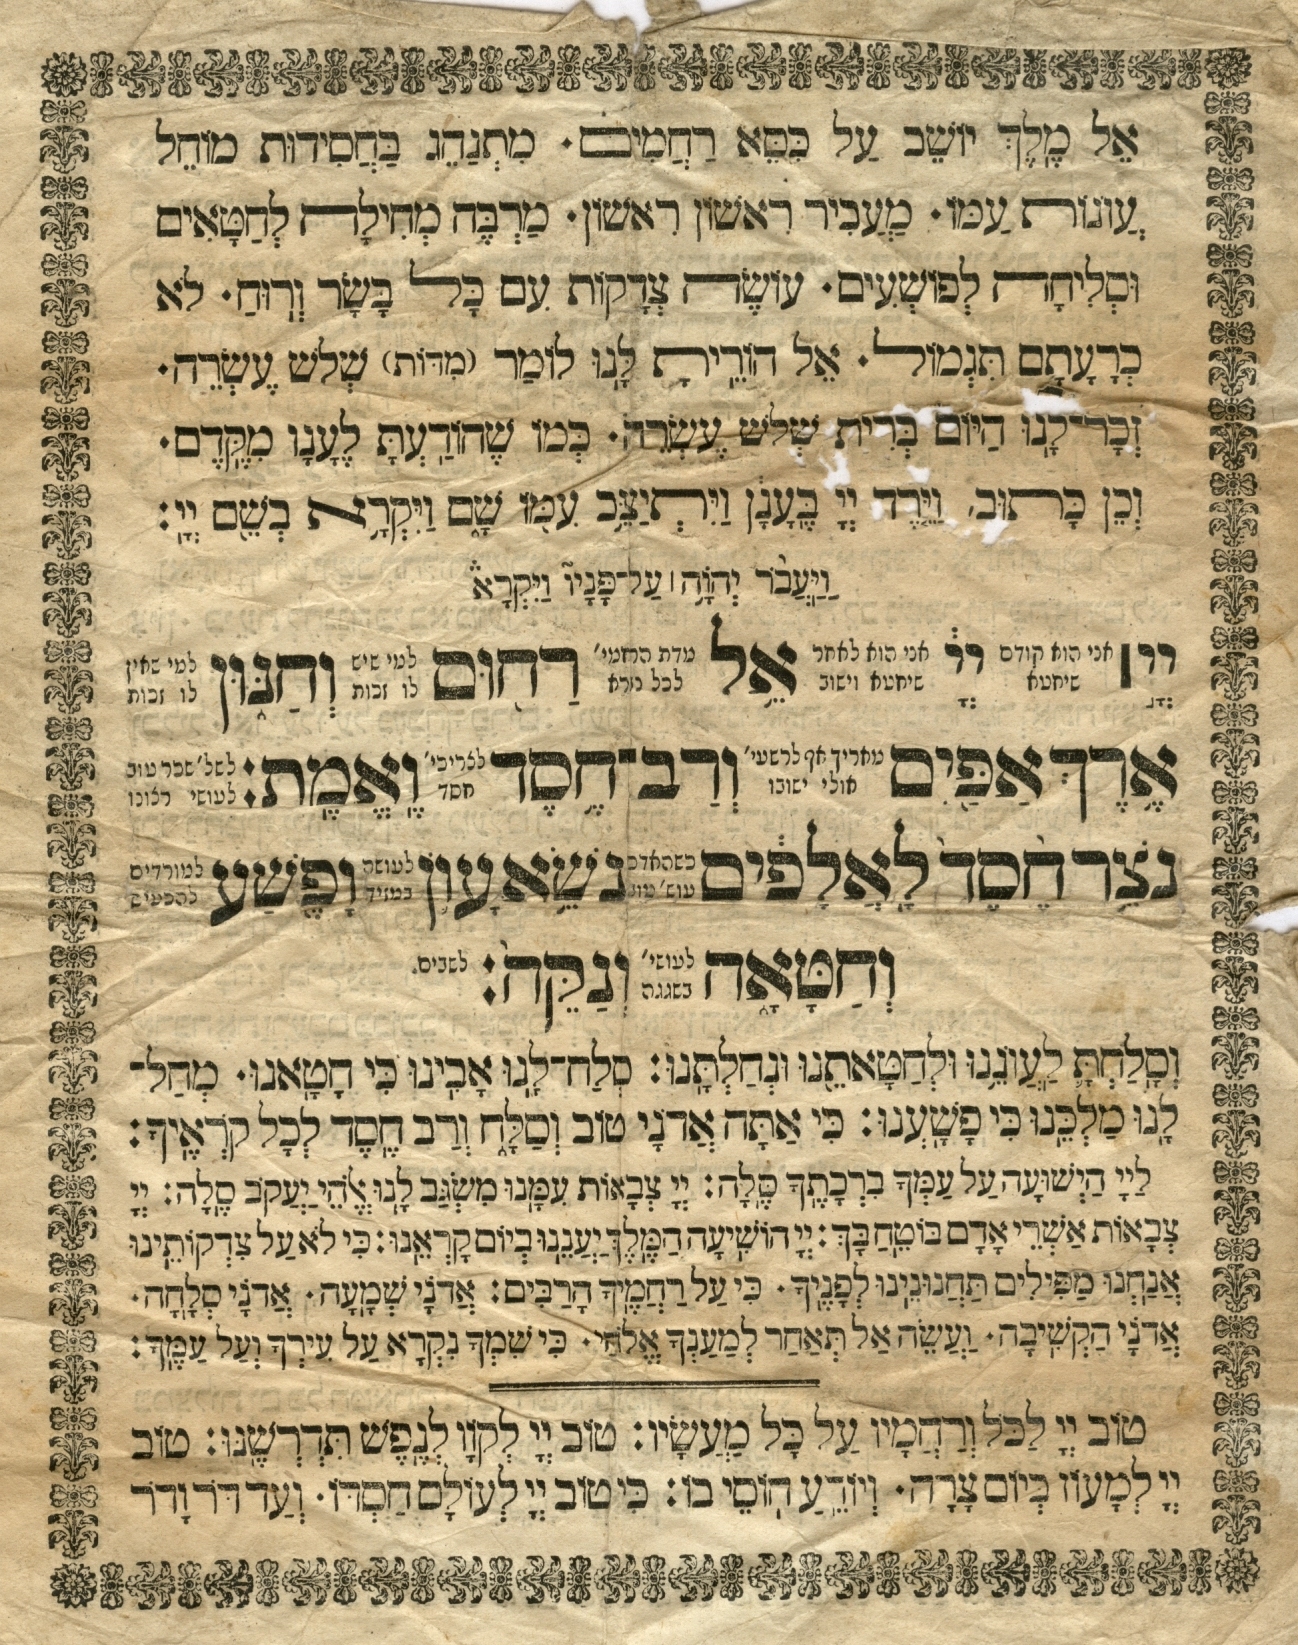 אֵל מֶלֶךְ יוֹשֵׁב עַל כִּסֵּא רַחֲמִים· מִתְנַהֵג בַּחֲסִידוּת מוֹחֵל
עֲוֹנוֹת עַמּוֹ· מַעֲבִיר רִאשׁוֹן רִאשׁוֹן· מַרְבֶּה מְחִילָה לְחַטָּאִים
וּסְלִיחָה לְפוֹשְׁעִים· עוֹשֶׂה צְדָקוֹת עִם כָּל בָּשָׂר וְרוּחַ· לֹא
כְרָעָתָם תִּגְמוֹל· אֵל הוֹרֵיתָ לָּנוּ לוֹמַר (מִדּוֹת) שְׁלֹשׁ עֶשְׂרֵה·
זְכָר־לָנוּ הַיּוֹם בְּרִית שְׁלֹשׁ עֶשְׂרֵה· כְּמוֹ שֶׁהוֹדַעְתָּ לֶעָנָו מִקֶּדֶם·
וְכֵן כָּתוּב· וַיֵּרֶד יְיָ בֶּעָנָן וַיִּתְיַצֵּב עִמּוֹ שָׁם וַיִּקְרָא בְשֵׁם יְיָ:
וַיַּעֲבֹר יְהֹוָה ׀ עַל־פָּנָיו וַיִּקְרָא
יְיָ ׀ אני הוא קודם שיחטא יְיָ אני הוא לאחר שיחטא וישוב אֵל מדת הרחמי׳ לכל מרא רַחוּם למי שיש לו זכות וְחַנּוּן למי שאין לו זכות
אֶרֶךְ אַפַּיִם מאריך אף לרשעי׳ אולי ישובו וְרַב־חֶסֶד לצריכי׳ חסד וֶאֱמֶת: לשל׳ שכר טוב לעושי רצונו
נֹצֵר חֶסֶד לָאֲלָפִים כשהאדם עוש׳ טוב נֹשֵׂא עָוֹן לעושה במזיד וָפֶשַׁע למורדים להכעיס
וְחַטָּאָה לעושי׳ בשגגה וְנַקֵּה: לשבים.
וְסָלַחְתָּ לַעֲוֹנֵנוּ וּלְחַטָּאתֵנוּ וּנְחַלְתָּנוּ: סְלַח־לָנוּ אָבִינוּ כִּי חָטָאנוּ· מְחַל־
לָנוּ מַלְכֵּנוּ כִּי פָשָׁעְנוּ: כִּי אַתָּה אֲדֹנָי טוֹב וְסַלָּח וְרַב חֶסֶד לְכָל קֹרְאֶיךָ:
לַיְיָ הַיְשׁוּעָה עַל עַמְּךָ בִרְכָתֶךָ סֶּלָה: יְיָ צְבָאוֹת עִמָּנוּ מִשְׂגַּב לָנוּ אֱלֹהֵי יַעֲקֹב סֶלָה: יְיָ
צְבָאוֹת אַשְׁרֵי אָדָם בּוֹטֵחַ בָּךְ: יְיָ הוֹשִׁיעָה הַמֶּלֶךְ יַעֲנֵנוּ בְיוֹם קָרְאֵנוּ: כִּי לֹא עַל צִדְקוֹתֵינוּ
אֲנַחְנוּ מַפִּילִים תַּחֲנוּנֵינוּ לְפָנֶיךָ· כִּי עַל רַחֲמֶיךָ הָרַבִּים: אֲדֹנָי שְׁמָעָה· אֲדֹנָי סְלָחָה·
אֲדֹנָי הַקְשִׁיבָה· וַעֲשֵׂה אַל תְּאַחַר לְמַעַנְךָ אֱלֹהַי· כִּי שִׁמְךָ נִקְרָא עַל עִירְךָ וְעַל עַמֶּךָ:
טוֹב יְיָ לַכֹּל וְרַחֲמָיו עַל כָּל מַעֲשָׂיו: טוֹב יְיָ לְקוָֹו לְנֶפֶשׁ תִּדְרְשֶׁנּוּ: טוֹב
יְיָ לְמָעוֹז בְּיוֹם צָרָה· וְיוֹדֵעַ חוֹסֵי בוֹ: כִּי טוֹב יְיָ לְעוֹלָם חַסְדּוֹ· וְעַד דֹּר וָדֹר